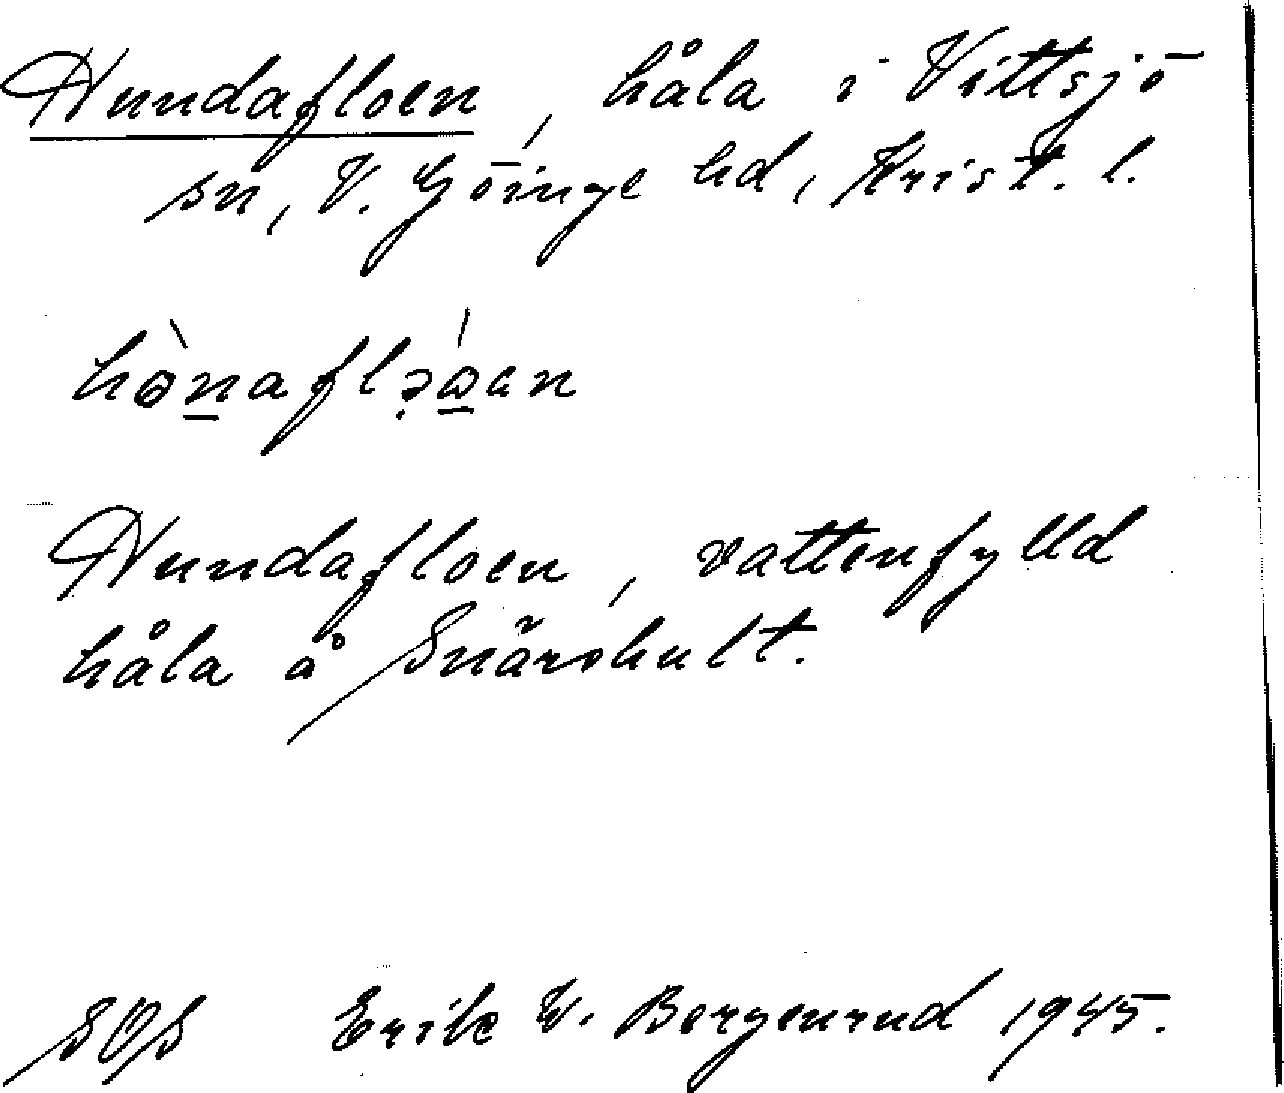 Hundafloen, håla i Vittsjö
sn, V. Göinge hd, Krist. l.
Hundafloen, vattenfylld
håla å Snärshult.
SOS Erik W. Bergenrud 1945.